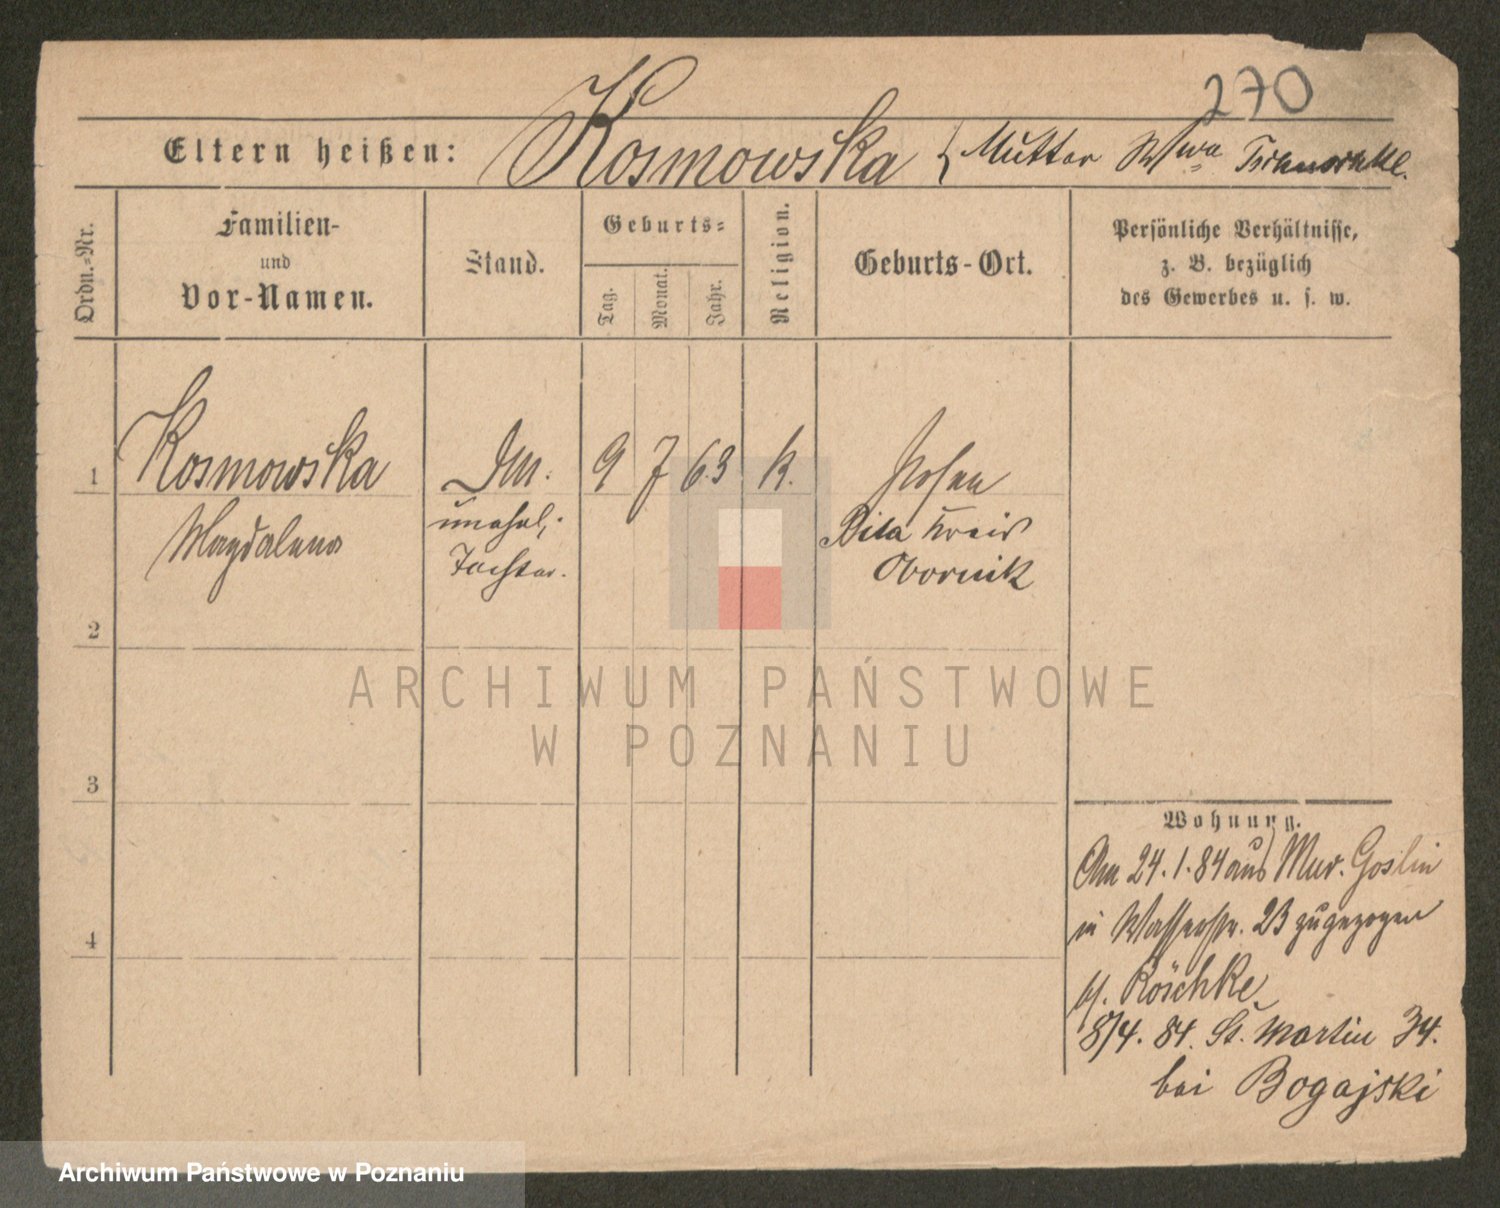 270
Eltern heißen: Kosmowska { Mutter Wwa
Ordn.-Nr.
Familien-
und
Vor-Namen.
Stand.
Geburts-
Tag.
Monat.
Jahr.
Religion.
Geburts-Ort.
Persönliche Verhältnisse,
z. B. bezüglich
des Gewerbes u. s. w.
1 Kosmowska 9 7 63 k. Posen
Magdalena unehel. Kreis
Tochter. Obornik
2
3
4
Wohnung.
Am 24.1.84 aus Mur. Goslin
in Wasserstr. 23 zugezogen
Röschke
8/4. 84. St. Martin 34.
bei Bogajski
ARCHIWUM PAŃSTWOWE
W POZNANIU
Archiwum Państwowe w Poznaniu